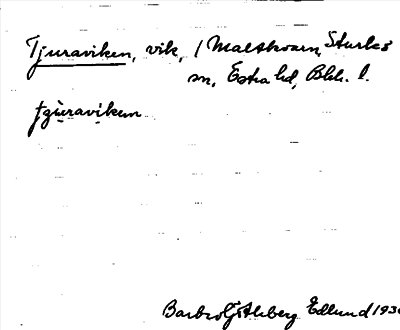 Tjuraviken, vik, / Maltkvarn, Sturkö
sn, Östra hd, Blek. l.
tjùraviken
Barbro Edlund 193